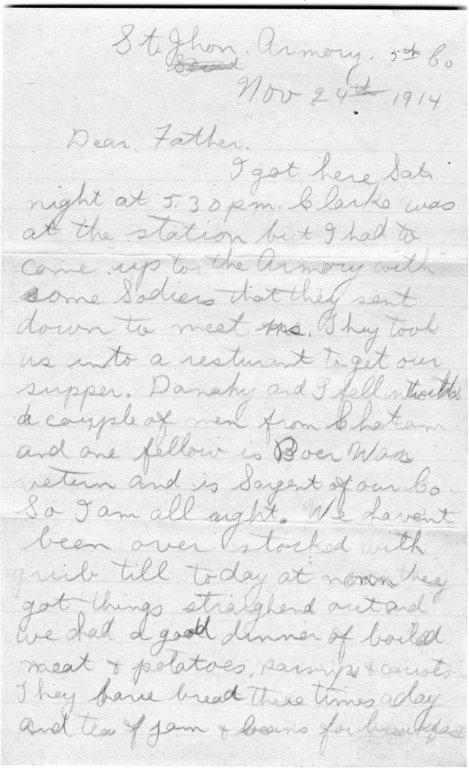 St. Jhon. Armory. 5th Co
Nov 24th 1914
Dear Father.
I got here Sat.
night at 5.30 p.m. Clarke was
at the station but I had to
come up to the Armory with
some Sodiers that they sent
down to meet us. They took
us into a resturant to get our
supper. Danahy and I fell in with
a couple of men from Chatam
and one fellow is Boer War
vetern and is Sargent of our Co.
So I am all right. We havent
been over stocked with
grub till today at noon they
got things straighend out and
we had a good dinner of boiled
meat & potatoes, parsnips & carrots
They have bread three times a day
and tea & jam & beans for breakfast